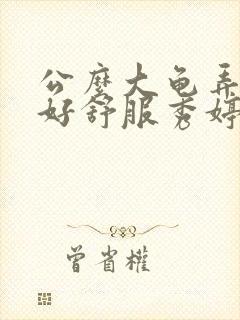 公麽大龟弄
好舒服秀婷
曾省權